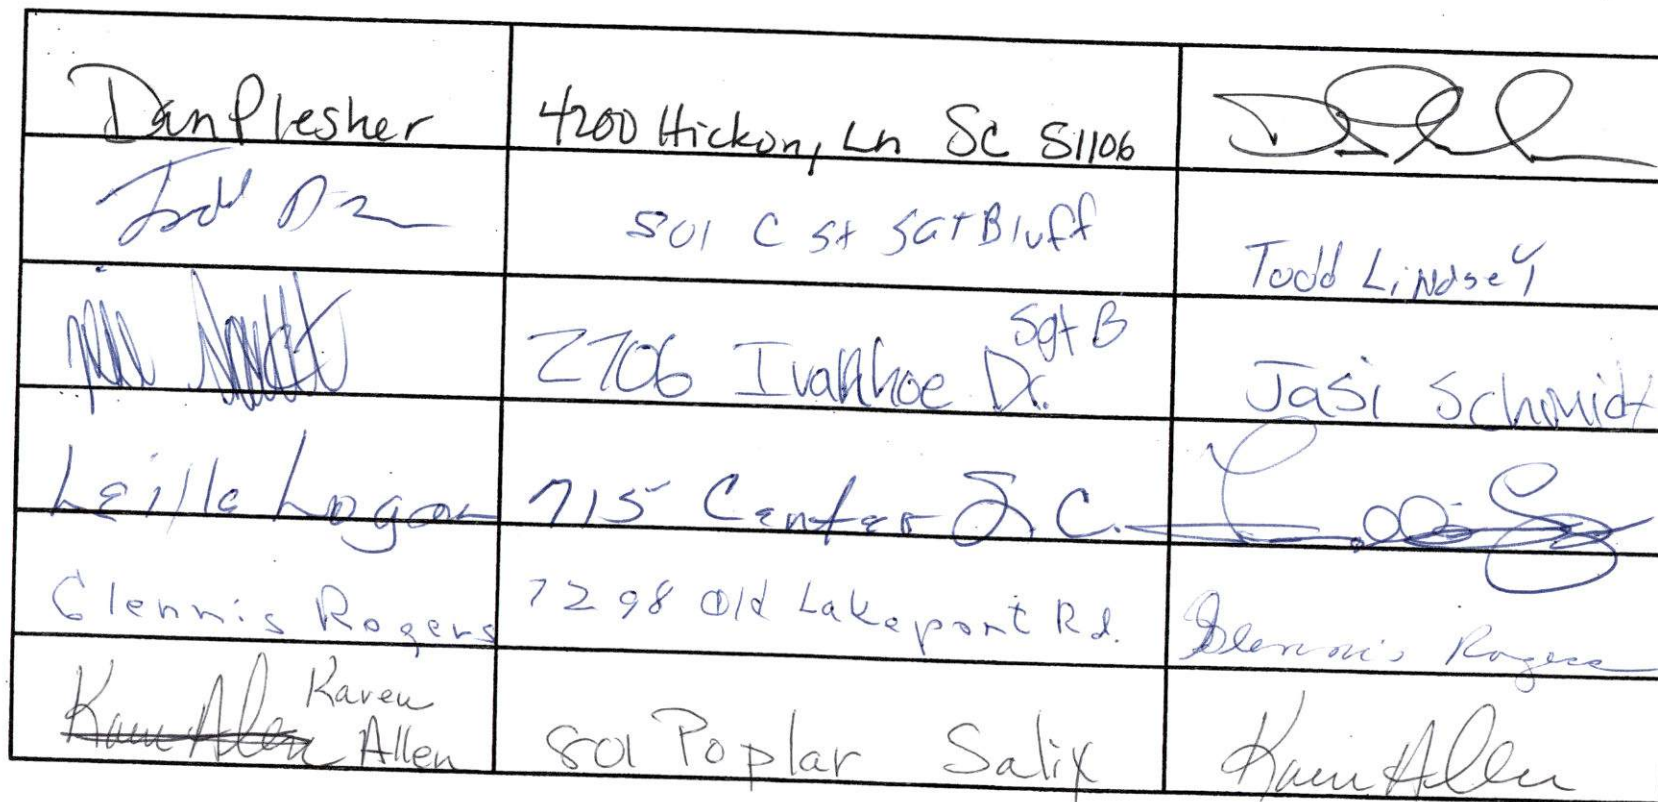 Dan Plesher 4200 Hickory Ln SC 51106
801 C St SGT Bluff Todd Lindsey
2706 Ivanhoe Dr. Sgt B Jasi Schmidt
Leilla Logan 715 Center S.C.
Glennis Rogers 7298 Old Lakeport Rd. Glennis Rogers
Karen Allen Karen Allen 801 Poplar Salix Karen Allen